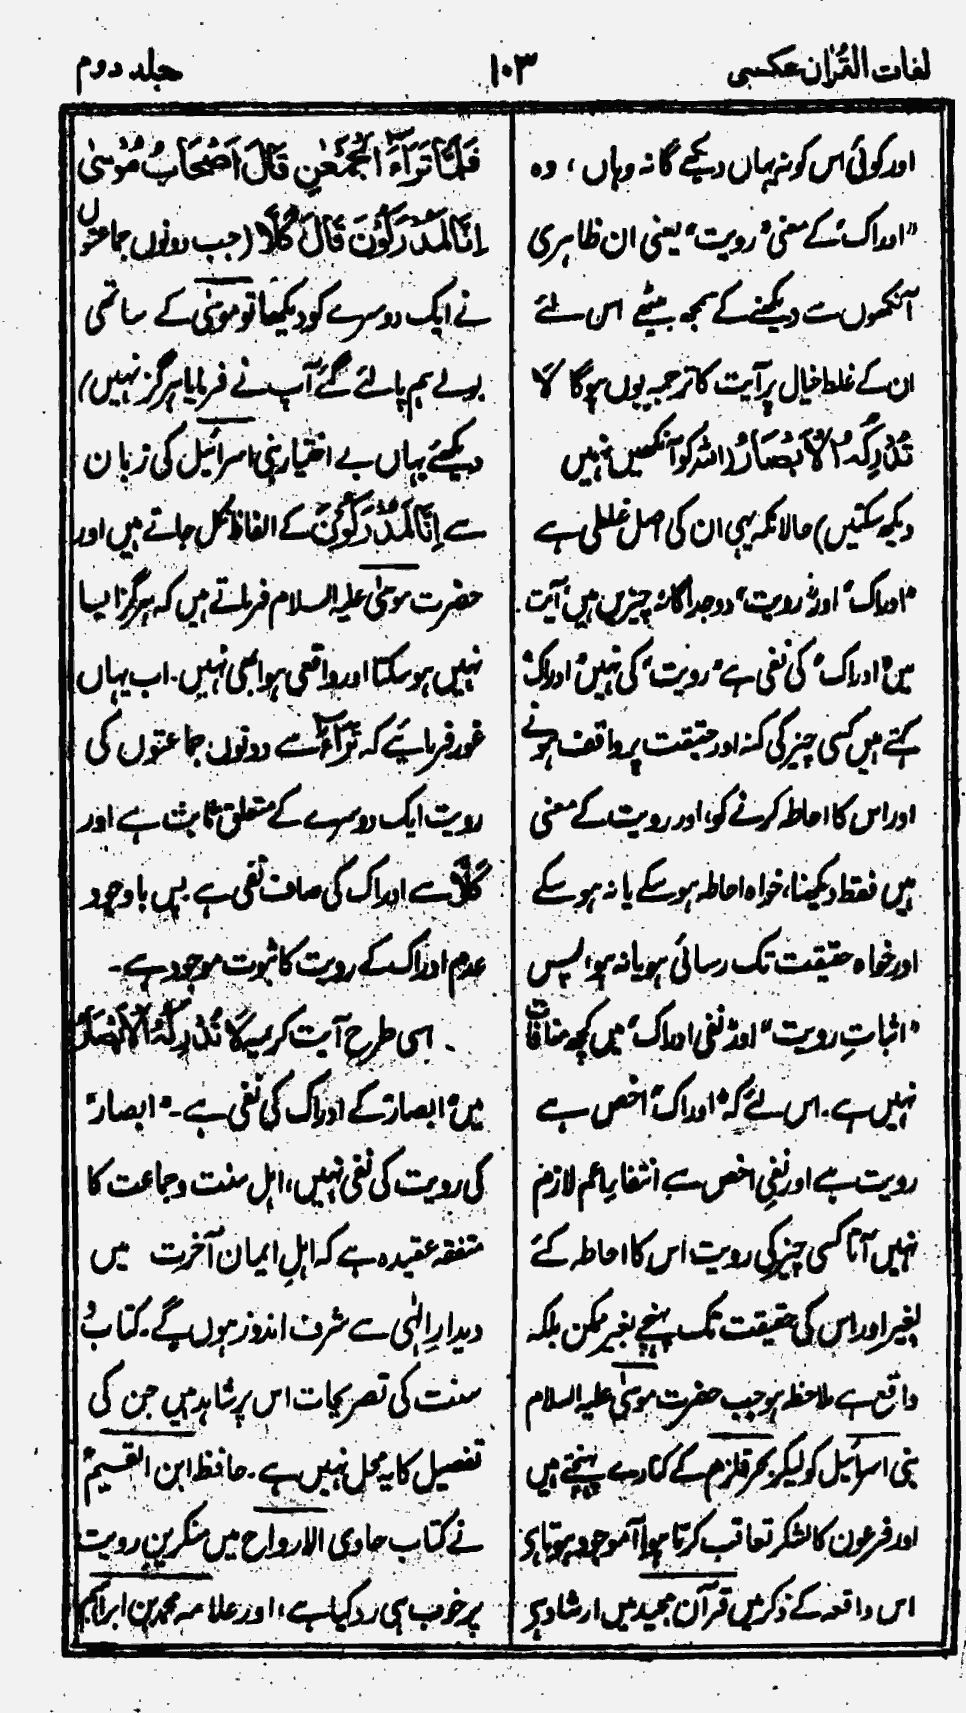 لغات القرٰان عکسی
۱۰۳
جلد دوم
اور کوئی اس کو نہ یہاں دیکھے گا نہ وہاں، وہ
"ادراک" کے معنی "رویت" یعنی ان ظاہری
آنکھوں سے دیکھنے کے سمجھ بیٹھے اس لئے
ان کے غلط خیال پر آیت کا ترجمہ یوں ہوگا لَا
تُدْرِكُهُ الْاَبْصَارُ (اللہ کو آنکھیں نہیں
دیکھ سکتیں) حالانکہ یہی ان کی اصل غلطی ہے
"ادراک" اور "رویت" دو جداگانہ چیزیں ہیں آیت
میں "ادراک" کی نفی ہے "رویت" کی نہیں "ادراک"
کہتے ہیں کسی چیز کی کنہ اور حقیقت پر واقف ہونے
اور اس کا احاطہ کرنے کو، اور رویت کے معنی
ہیں فقط دیکھنا، خواہ احاطہ ہو سکے یا نہ ہو سکے
اور خواہ حقیقت تک رسائی ہو یا نہ ہو، پس
"اثباتِ رویت" اور "نفی ادراک" میں کچھ منافات
نہیں ہے۔ اس لئے کہ "ادراک" اخص ہے
رویت سے اور نفیِ اخص سے انتفایِ اعم لازم
نہیں آتا کسی چیز کی رویت اس کا احاطہ کئے
بغیر اور اس کی حقیقت تک پہنچے بغیر ممکن بلکہ
واقع ہے ملاحظہ ہو جب حضرت موسیٰ علیہ السلام
بنی اسرائیل کو لیکر بحر قلزم کے کنارے پہنچتے ہیں
اور فرعون کا لشکر تعاقب کرتا ہوا آموجود ہوتا ہے
اس واقعہ کے ذکر میں قرآن مجید میں ارشاد ہے
فَلَمَّا تَرَآءَ الْجَمْعٰنِ قَالَ اَصْحَابُ مُوْسٰى
اِنَّا لَمُدْرَكُوْنَ قَالَ كَلَّا (جب دونوں جماعتوں
نے ایک دوسرے کو دیکھا تو موسٰی کے ساتھی
بولے ہم پالئے گئے آپ نے فرمایا ہرگز نہیں)
دیکھئے یہاں بے اختیار بنی اسرائیل کی زبان
سے اِنَّا لَمُدْرَكُوْنَ کے الفاظ نکل جاتے ہیں اور
حضرت موسیٰ علیہ السلام فرماتے ہیں کہ ہرگز ایسا
نہیں ہو سکتا اور واقعی ہوا بھی نہیں۔ اب یہاں
غور فرمایئے کہ تَرَآءَ سے دونوں جماعتوں کی
رویت ایک دوسرے کے متعلق ثابت ہے اور
كَلَّا سے ادراک کی صاف نفی ہے۔ پس باوجود
عدم ادراک کے رویت کا ثبوت موجود ہے۔
اسی طرح آیت کریمہ لَا تُدْرِكُهُ الْاَبْصَارُ
میں "ابصار" کے ادراک کی نفی ہے۔ "ابصار"
کی رویت کی نفی نہیں، اہل سنت وجماعت کا
متفقہ عقیدہ ہے کہ اہلِ ایمان آخرت میں
دیدارِ الٰہی سے شرف اندوز ہوں گے۔ کتاب و
سنت کی تصریحات اس پر شاہد ہیں جن کی
تفصیل کا یہ محل نہیں ہے۔ حافظ ابن القیم
نے کتاب حاوی الارواح میں منکرینِ رویت
پر خوب ہی رد کیا ہے، اور علامہ محمد بن ابراہیم